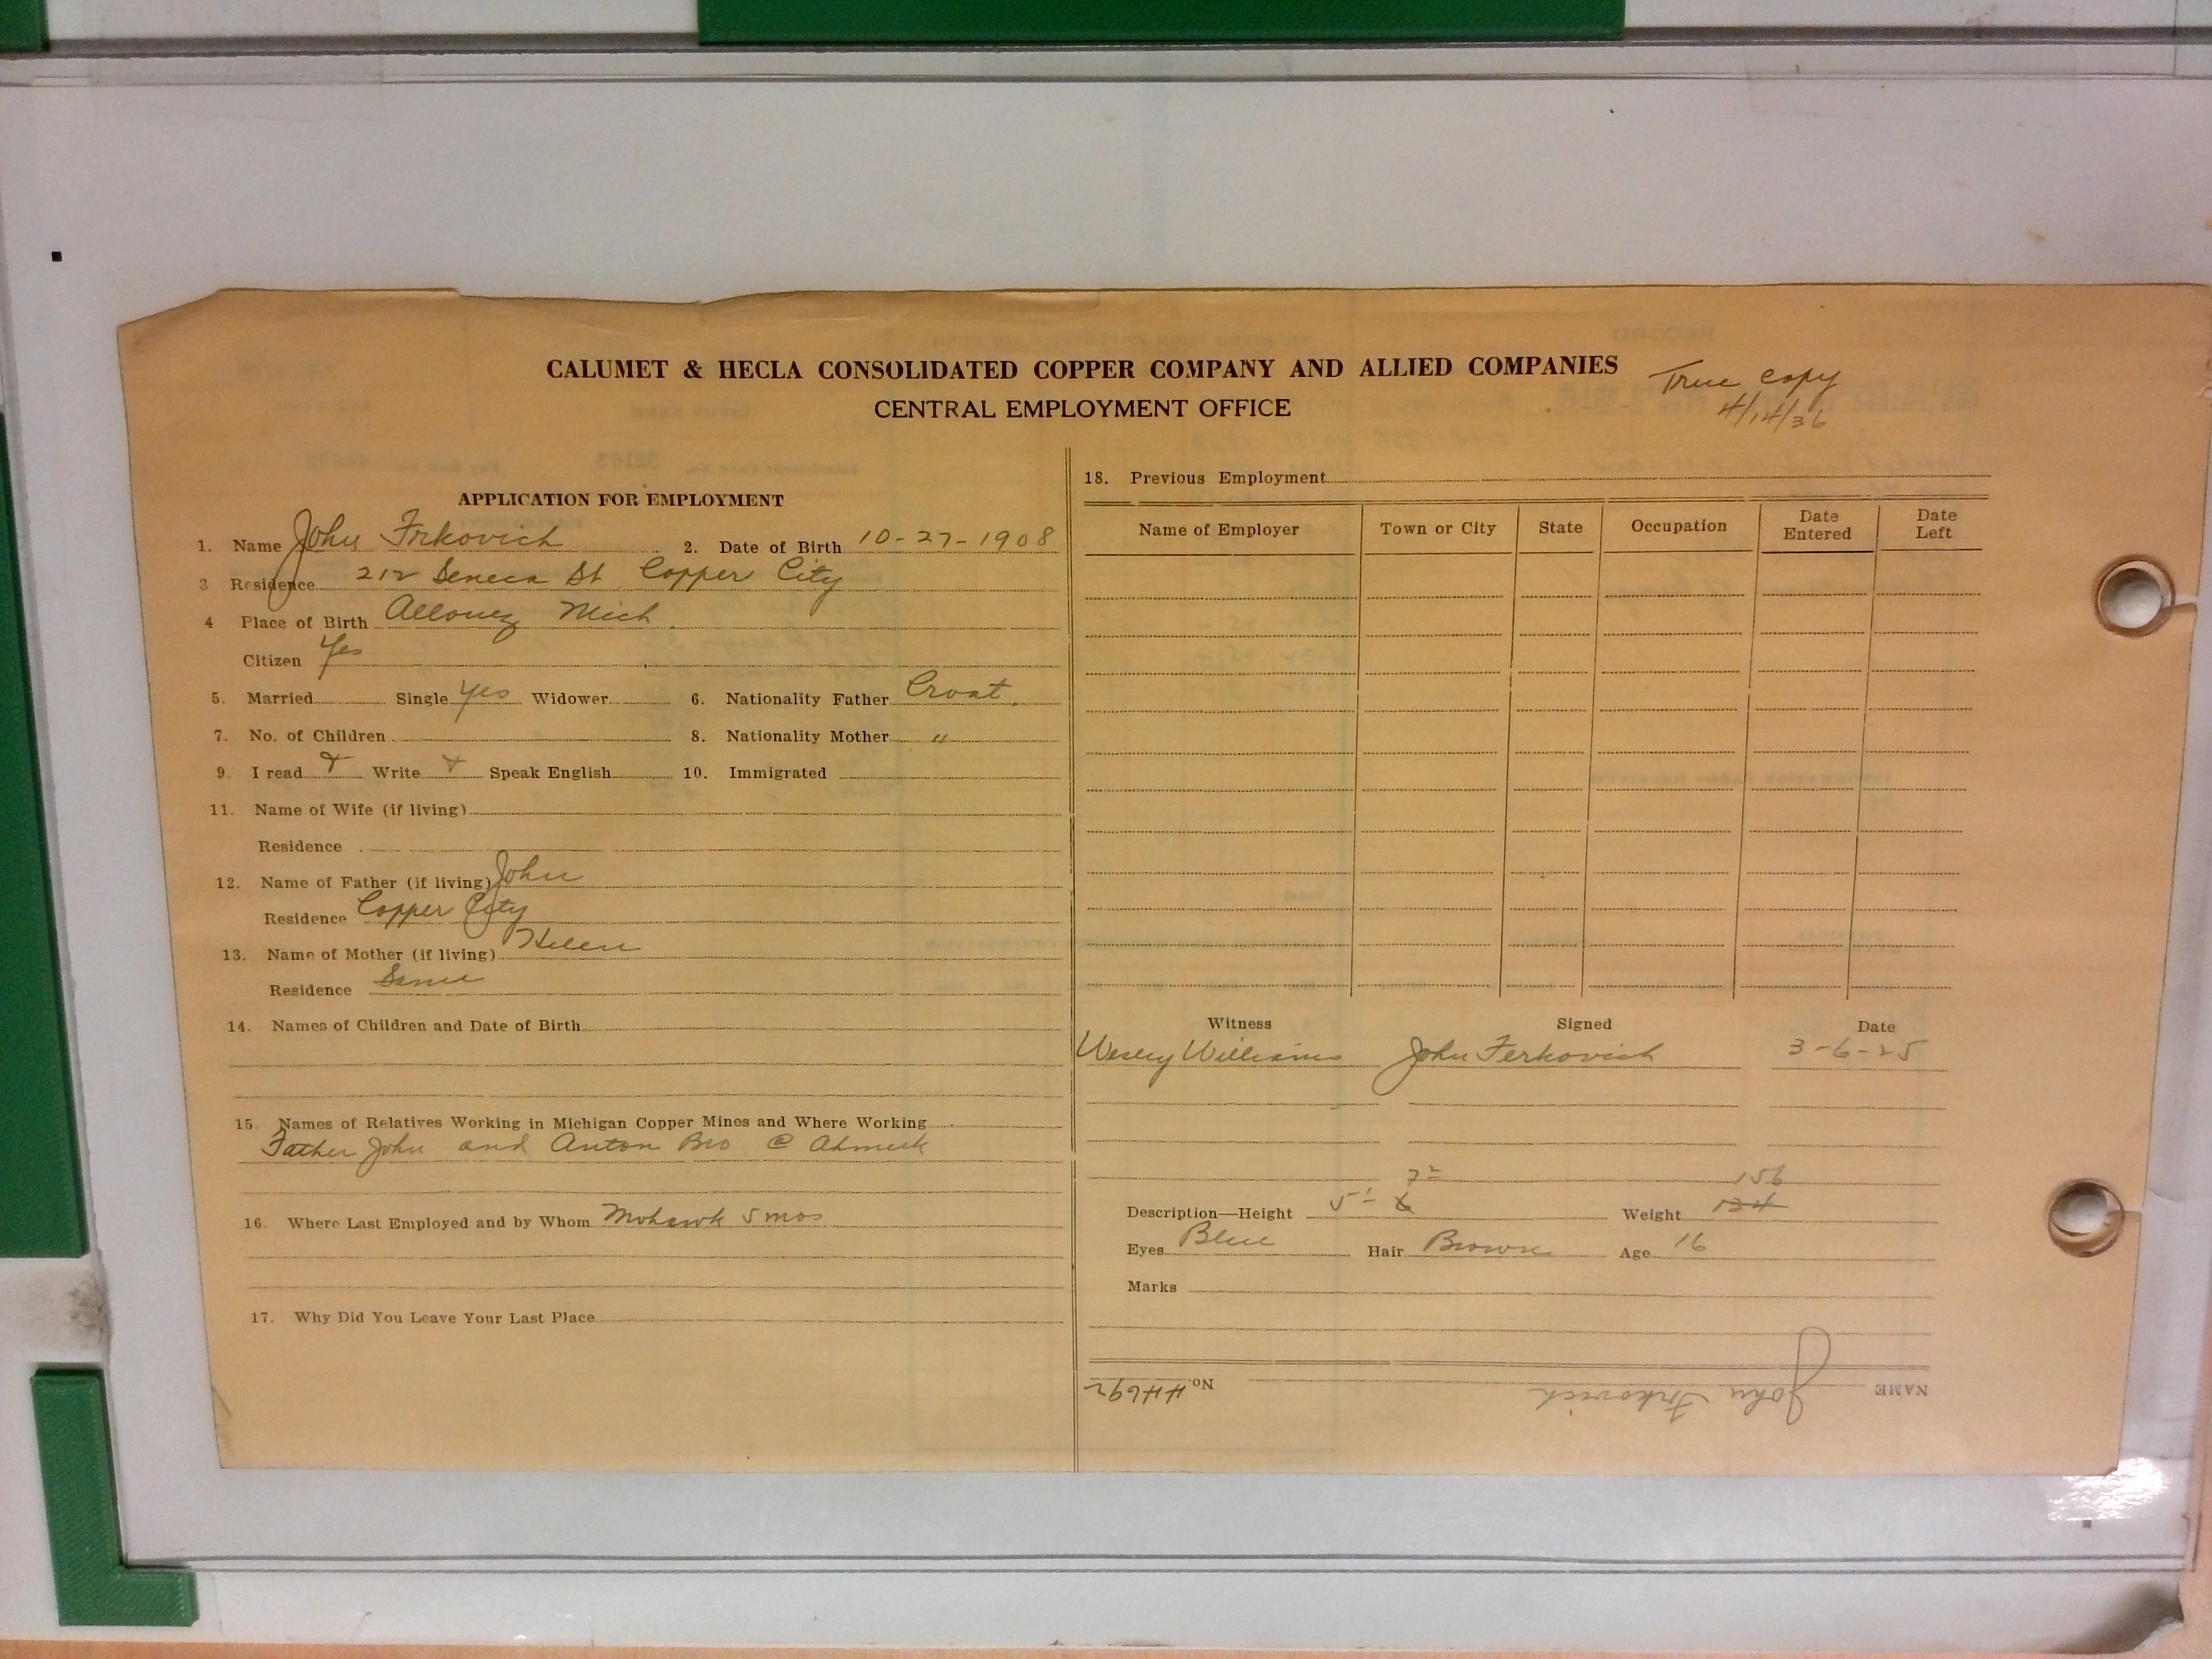 CALUMET & HECLA CONSOLIDATED COPPER COMPANY AND ALLIED COMPANIES
True copy
CENTRAL EMPLOYMENT OFFICE
4/14/36
APPLICATION FOR EMPLOYMENT
1. Name John Frkovich 2. Date of Birth 10-27-1908
3 Residence 212 Seneca St Copper City
4 Place of Birth Allouez Mich.
Citizen Yes
5. Married Single Yes Widower 6. Nationality Father Croat.
7. No. of Children 8. Nationality Mother "
9. I read Write Speak English 10. Immigrated
11. Name of Wife (if living)
Residence
12. Name of Father (if living) John
Residence Copper City
13. Name of Mother (if living) Helen
Residence Same
14. Names of Children and Date of Birth
15. Names of Relatives Working in Michigan Copper Mines and Where Working
Father John and Anton Bro @ Ahmeek
16. Where Last Employed and by Whom Mohawk 5 mos
17. Why Did You Leave Your Last Place
18. Previous Employment
Name of Employer Town or City State Occupation Date Entered Date Left
Witness Signed Date
Wesley Williams John Ferkovich 3-6-25
7½ 156
Description—Height 5' 6 Weight 134
Eyes Blue Hair Brown Age 16
Marks
NAME John Frkovich No. 44692